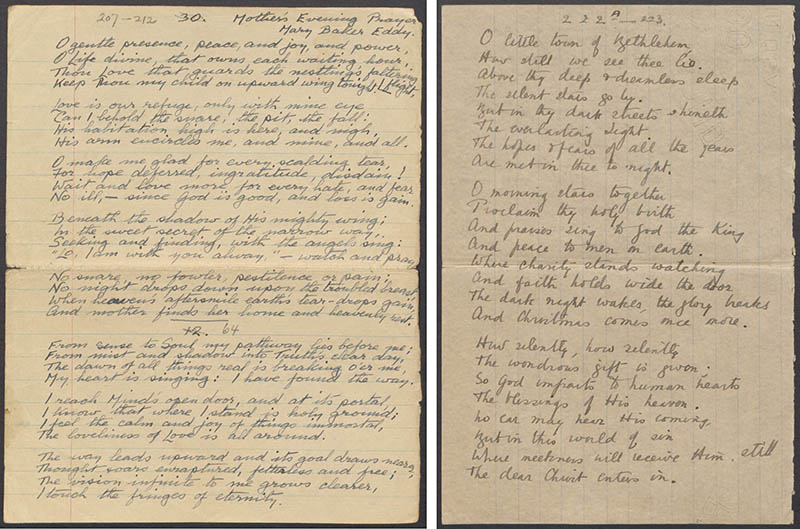 207-212 30. Mother's Evening Prayer
Mary Baker Eddy.
O gentle presence, peace, and joy, and power,
O Life divine, that owns each waiting hour;
Thou Love that guards the nestling's faltering
Keep Thou my child on upward wing tonight. flight,
Love is our refuge; only with mine eye
Can I behold the snare, the pit, the fall:
His habitation high is here, and nigh,
His arm encircles me, and mine, and all.
O make me glad for every scalding tear,
For hope deferred, ingratitude, disdain!
Wait and love more for every hate, and fear
No ill, — since God is good, and loss is gain.
Beneath the shadow of His mighty wing;
In the sweet secret of the narrow way,
Seeking and finding, with the angels sing:
"Lo, I am with you alway," — watch and pray
No snare, no fowler, pestilence or pain;
No night drops down upon the troubled breast,
When heaven's aftersmile earth's tear-drops gain,
And mother finds her home and heavenly rest.
+2. 64
From sense to Soul my pathway lies before me;
From mist and shadow into Truth's clear day,
The dawn of all things real is breaking o'er me,
My heart is singing: I have found the way.
I reach Mind's open door, and at its portal,
I know that where I stand is holy ground;
I feel the calm and joy of things immortal,
The loveliness of Love is all around.
The way leads upward and its goal draws nearer,
Thought soars enraptured, fetterless and free;
The vision infinite to me grows clearer,
I touch the fringes of eternity.
222A — 223.
O little town of Bethlehem,
How still we see thee lie.
Above thy deep & dreamless sleep
The silent stars go by.
But in thy dark streets shineth
The everlasting Light.
The hopes & fears of all the years
Are met in thee to night.
O morning stars together
Proclaim thy holy birth
And praises sing to God the King
And peace to men on earth.
Where charity stands watching
And faith holds wide the door
The dark night wakes, the glory breaks
And Christmas comes once more.
How silently, how silently,
The wondrous gift is given;
So God imparts to human hearts
The blessings of His heaven.
No ear may hear His coming,
But in this world of sin
Where meekness will receive Him still
The dear Christ enters in.